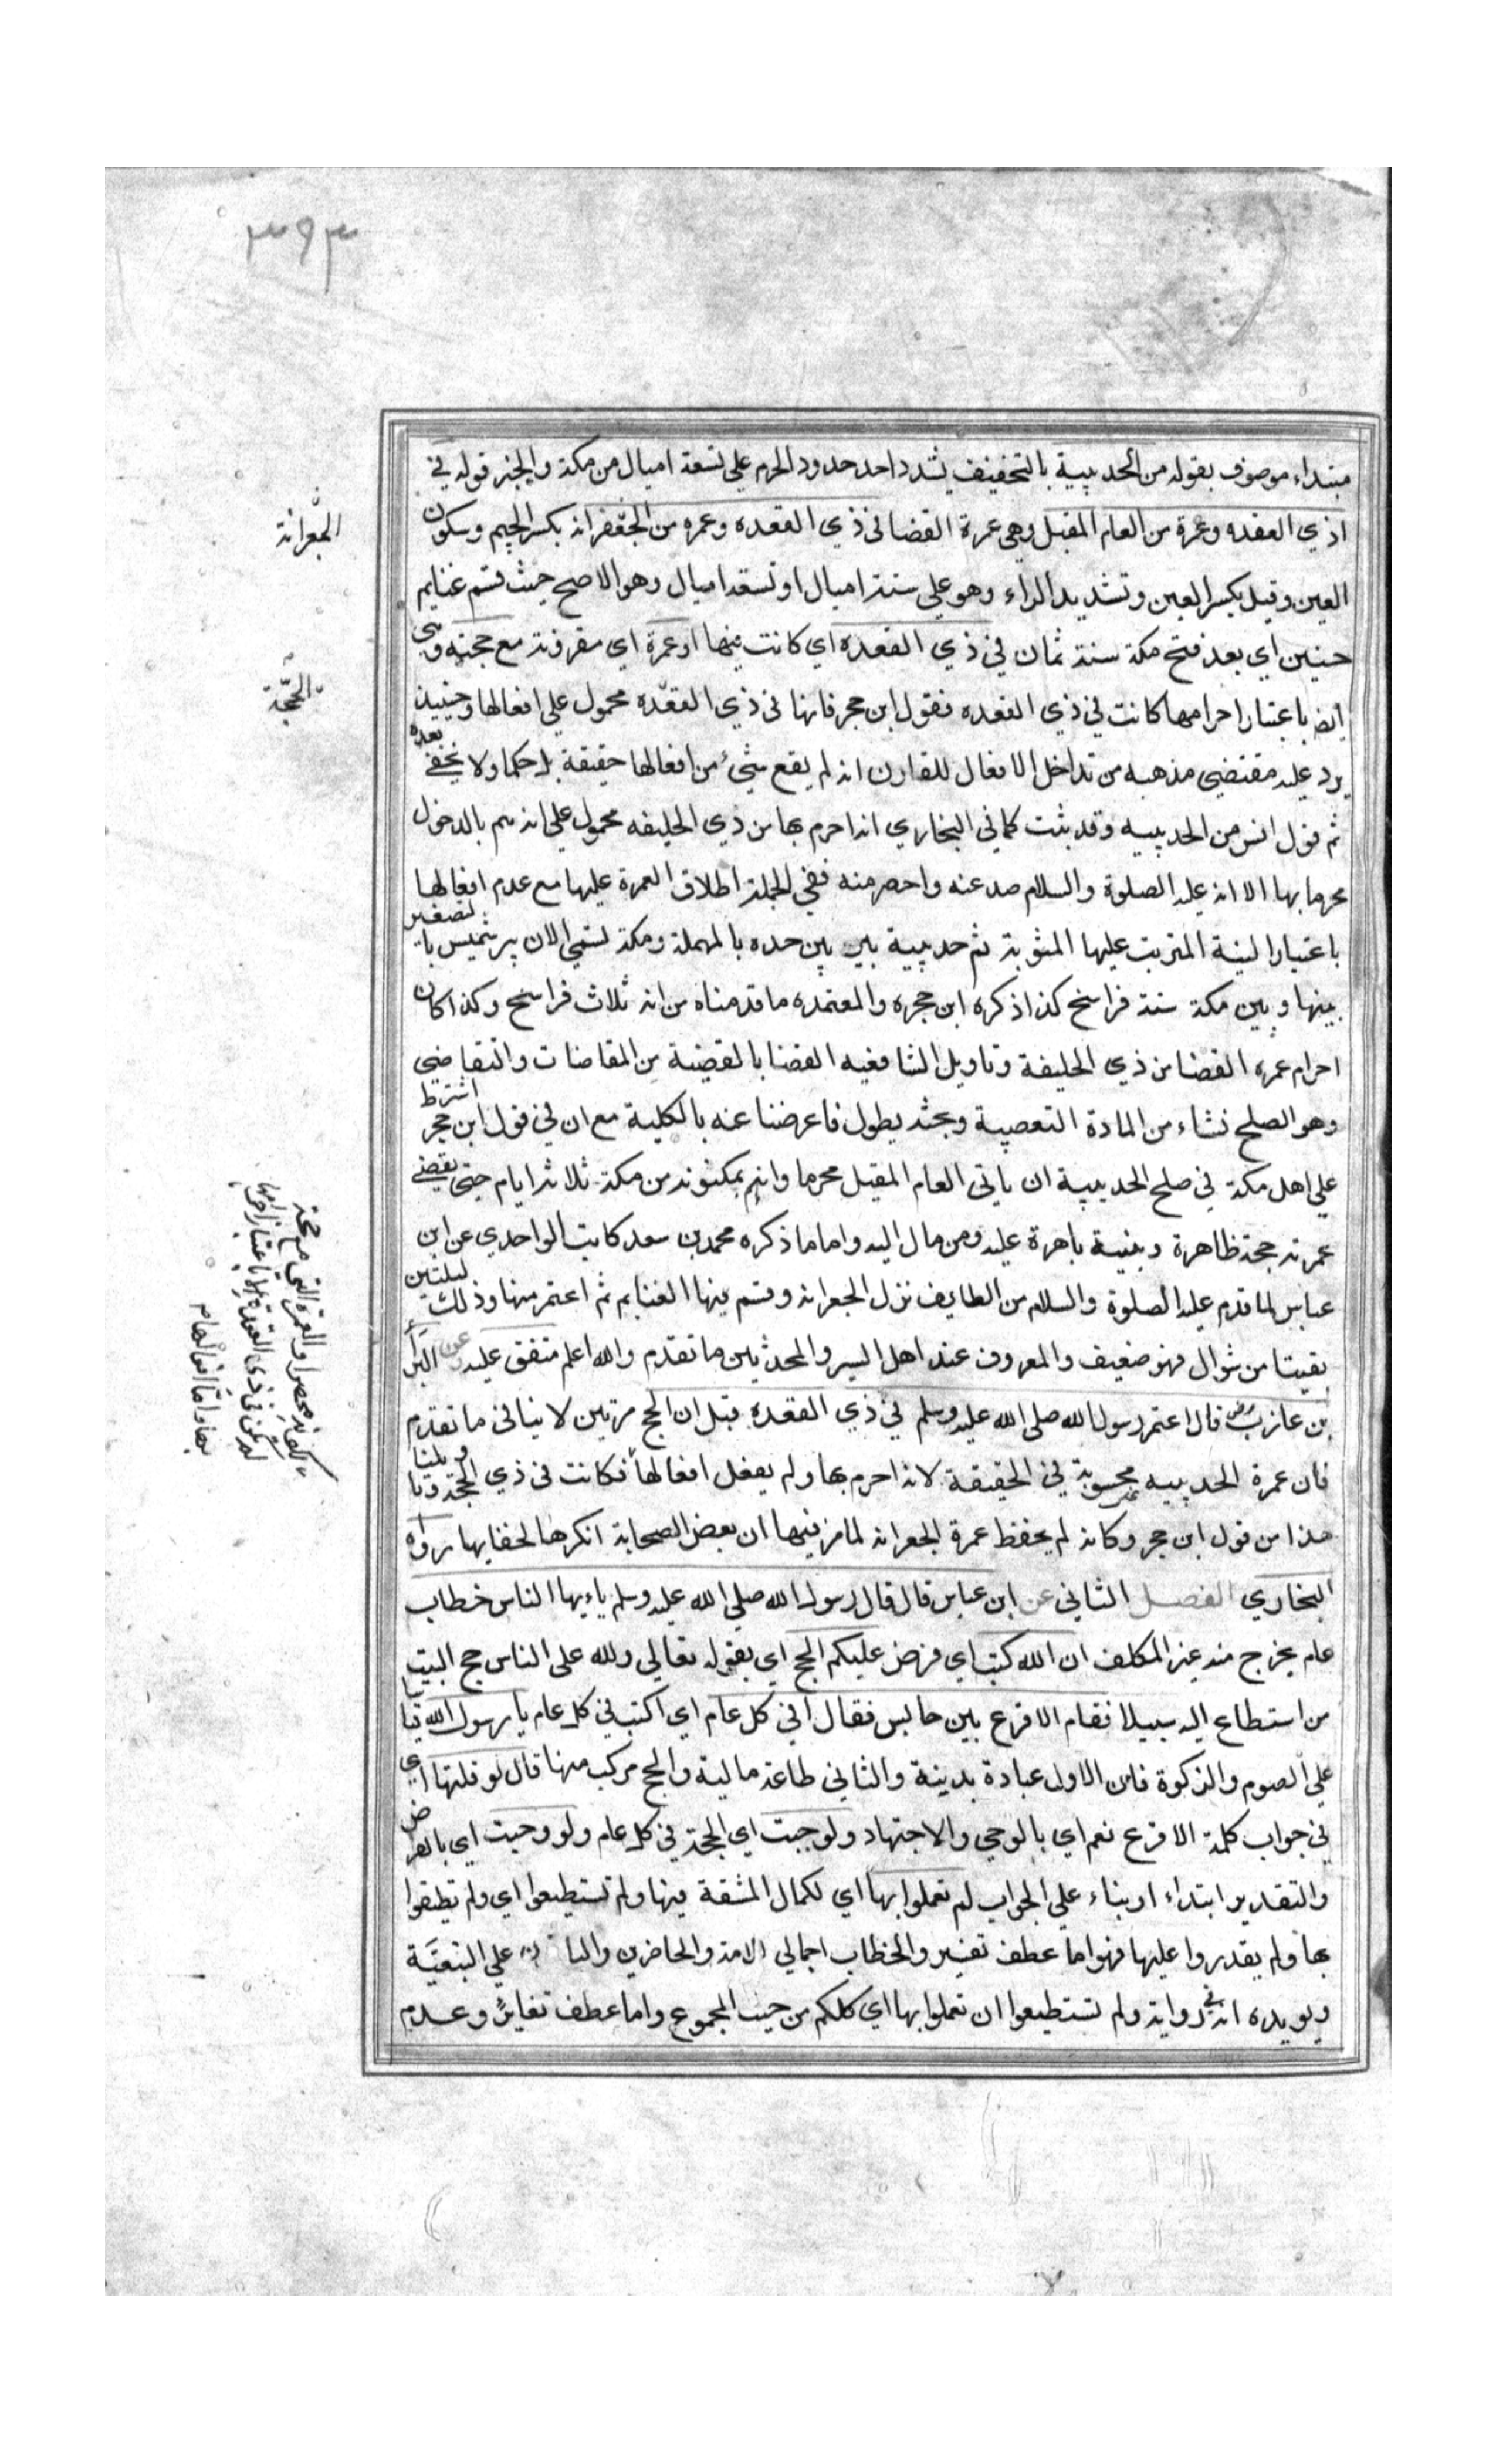 ٣٩٣
مبتداء موصوف بقوله من الحديبية بالتخفيف يشدد احد حدود الحرم علي تسعة اميال من مكة والخبر قوله في
اذي القعده وعمرة من العام المقبل وهي عمرة القضا في ذي القعده وعمره من الجعفرانه بكسر الجيم وسكون
العين وقيل بكسر العين وتشديد الراء وهو علي ستة اميال او تسعة اميال وهو الاصح حيث قسم غنايم
حنين اي بعد فتح مكة سنة ثمان في ذي القعده اي كانت فيها او عمرة اي مقرونة مع حجته وهي
ايضا باعتبار احرامها كانت في ذي القعده فقول ابن حجر فانها في ذي القعده محمول علي افعالها وحينيذ
يرد عليه مقتضي مذهبه من تداخل الافعال للقارن انه لم يقع شيء من افعالها حقيقة بل حكما ولا يخفي بعده
ثم قول انس من الحديبيه وقد ثبت كما في البخاري انه احرم بها من ذي الحليفه محمول علي انه هم بالدخول
محرما بها الا انه عليه الصلوة والسلام صد عنه واحصر منه ففي الجملة اطلاق العمرة عليها مع عدم افعالها
باعتبار النية المترتب عليها المثوبة ثم حديبية بير بين حده بالمهملة ومكة تسمي الان بير شميس بالتصغير
بينها وبين مكة ستة فراسخ كذا ذكره ابن حجره والمعتمده ما قدمناه من انه ثلاث فراسخ وكذا كان
احرام عمره القضا من ذي الحليفة وتاويل الشافعيه القضا بالقضية من المقاضات والتقاضي
وهو الصلح نشاء من المادة التعصبية وبحثه يطول فاعرضنا عنه بالكلية مع ان في قول ابن حجر اشترط
علي اهل مكة في صلح الحديبية ان ياتي العام المقبل محرما وانهم يمكنونه من مكة ثلاثة ايام حتي يقضي
عمرته حجة ظاهرة وبينة باهرة عليه ومن مال اليه واما ما ذكره محمد بن سعد كاتب الواحدي عن ابن
عباس لما قدم عليه الصلوة والسلام من الطايف نزل الجعرانه وقسم فيها الغنايم ثم اعتمر منها وذلك لليلتين
بقيتا من شوال فهو ضعيف والمعروف عند اهل السير والمحدثين ما تقدم والله اعلم متفق عليه وعن البرأ
بن عازب رض قال اعتمر رسول الله صلي الله عليه وسلم في ذي القعده قبل ان الحج مرتين لا ينافي ما تقدم
فان عمرة الحديبيه غير محسوبة في الحقيقة لانه احرم بها ولم يفعل افعالها فكانت في ذي الحجة وتا ويلنا
هذا من قول ابن حجر وكانه لم يحفظ عمرة الجعرانه لما مر فيها ان بعض الصحابة انكرها لخفايها رواه
البخاري الفصل الثاني عن ابن عباس قال قال رسول الله صلي الله عليه وسلم ياءيها الناس خطاب
عام يخرج منه غير المكلف ان الله كتب اي فرض عليكم الحج اي بقوله تعالي ولله علي الناس حج البيت
من استطاع اليه سبيلا فقام الاقرع بين حابس فقال افي كل عام اي اكتب في كل عام يا رسول الله قيا
علي الصوم والزكوة فان الاول عبادة بدينة والثاني طاعة مالية والحج مركب منها قال لو قلتها اي
في جواب كلمة الاقرع نعم اي بالوحي والاجتهاد ولوجبت اي الحجة في كل عام ولو وجبت اي بالفرض
والتقدير ابتداء او بناء علي الجواب لم تعملوا بها اي لكمال المشقة فيها ولم تستطيعوا اي ولم تطيقوا
بها ولم يقدروا عليها فهو اما عطف تفسير والخطاب اجمالي الامة والحاضرين علي التبعيَّة
ويويده انه في رواية ولم تستطيعوا ان تعملوا بها اي كلكم من حيث المجموع واما عطف تغاير وعدم
الجعْرانة
الحجّة
لكونه محصرا والعمرة التي مع حجة
لم يكن في ذي القعدة الا باعتبار احرامها